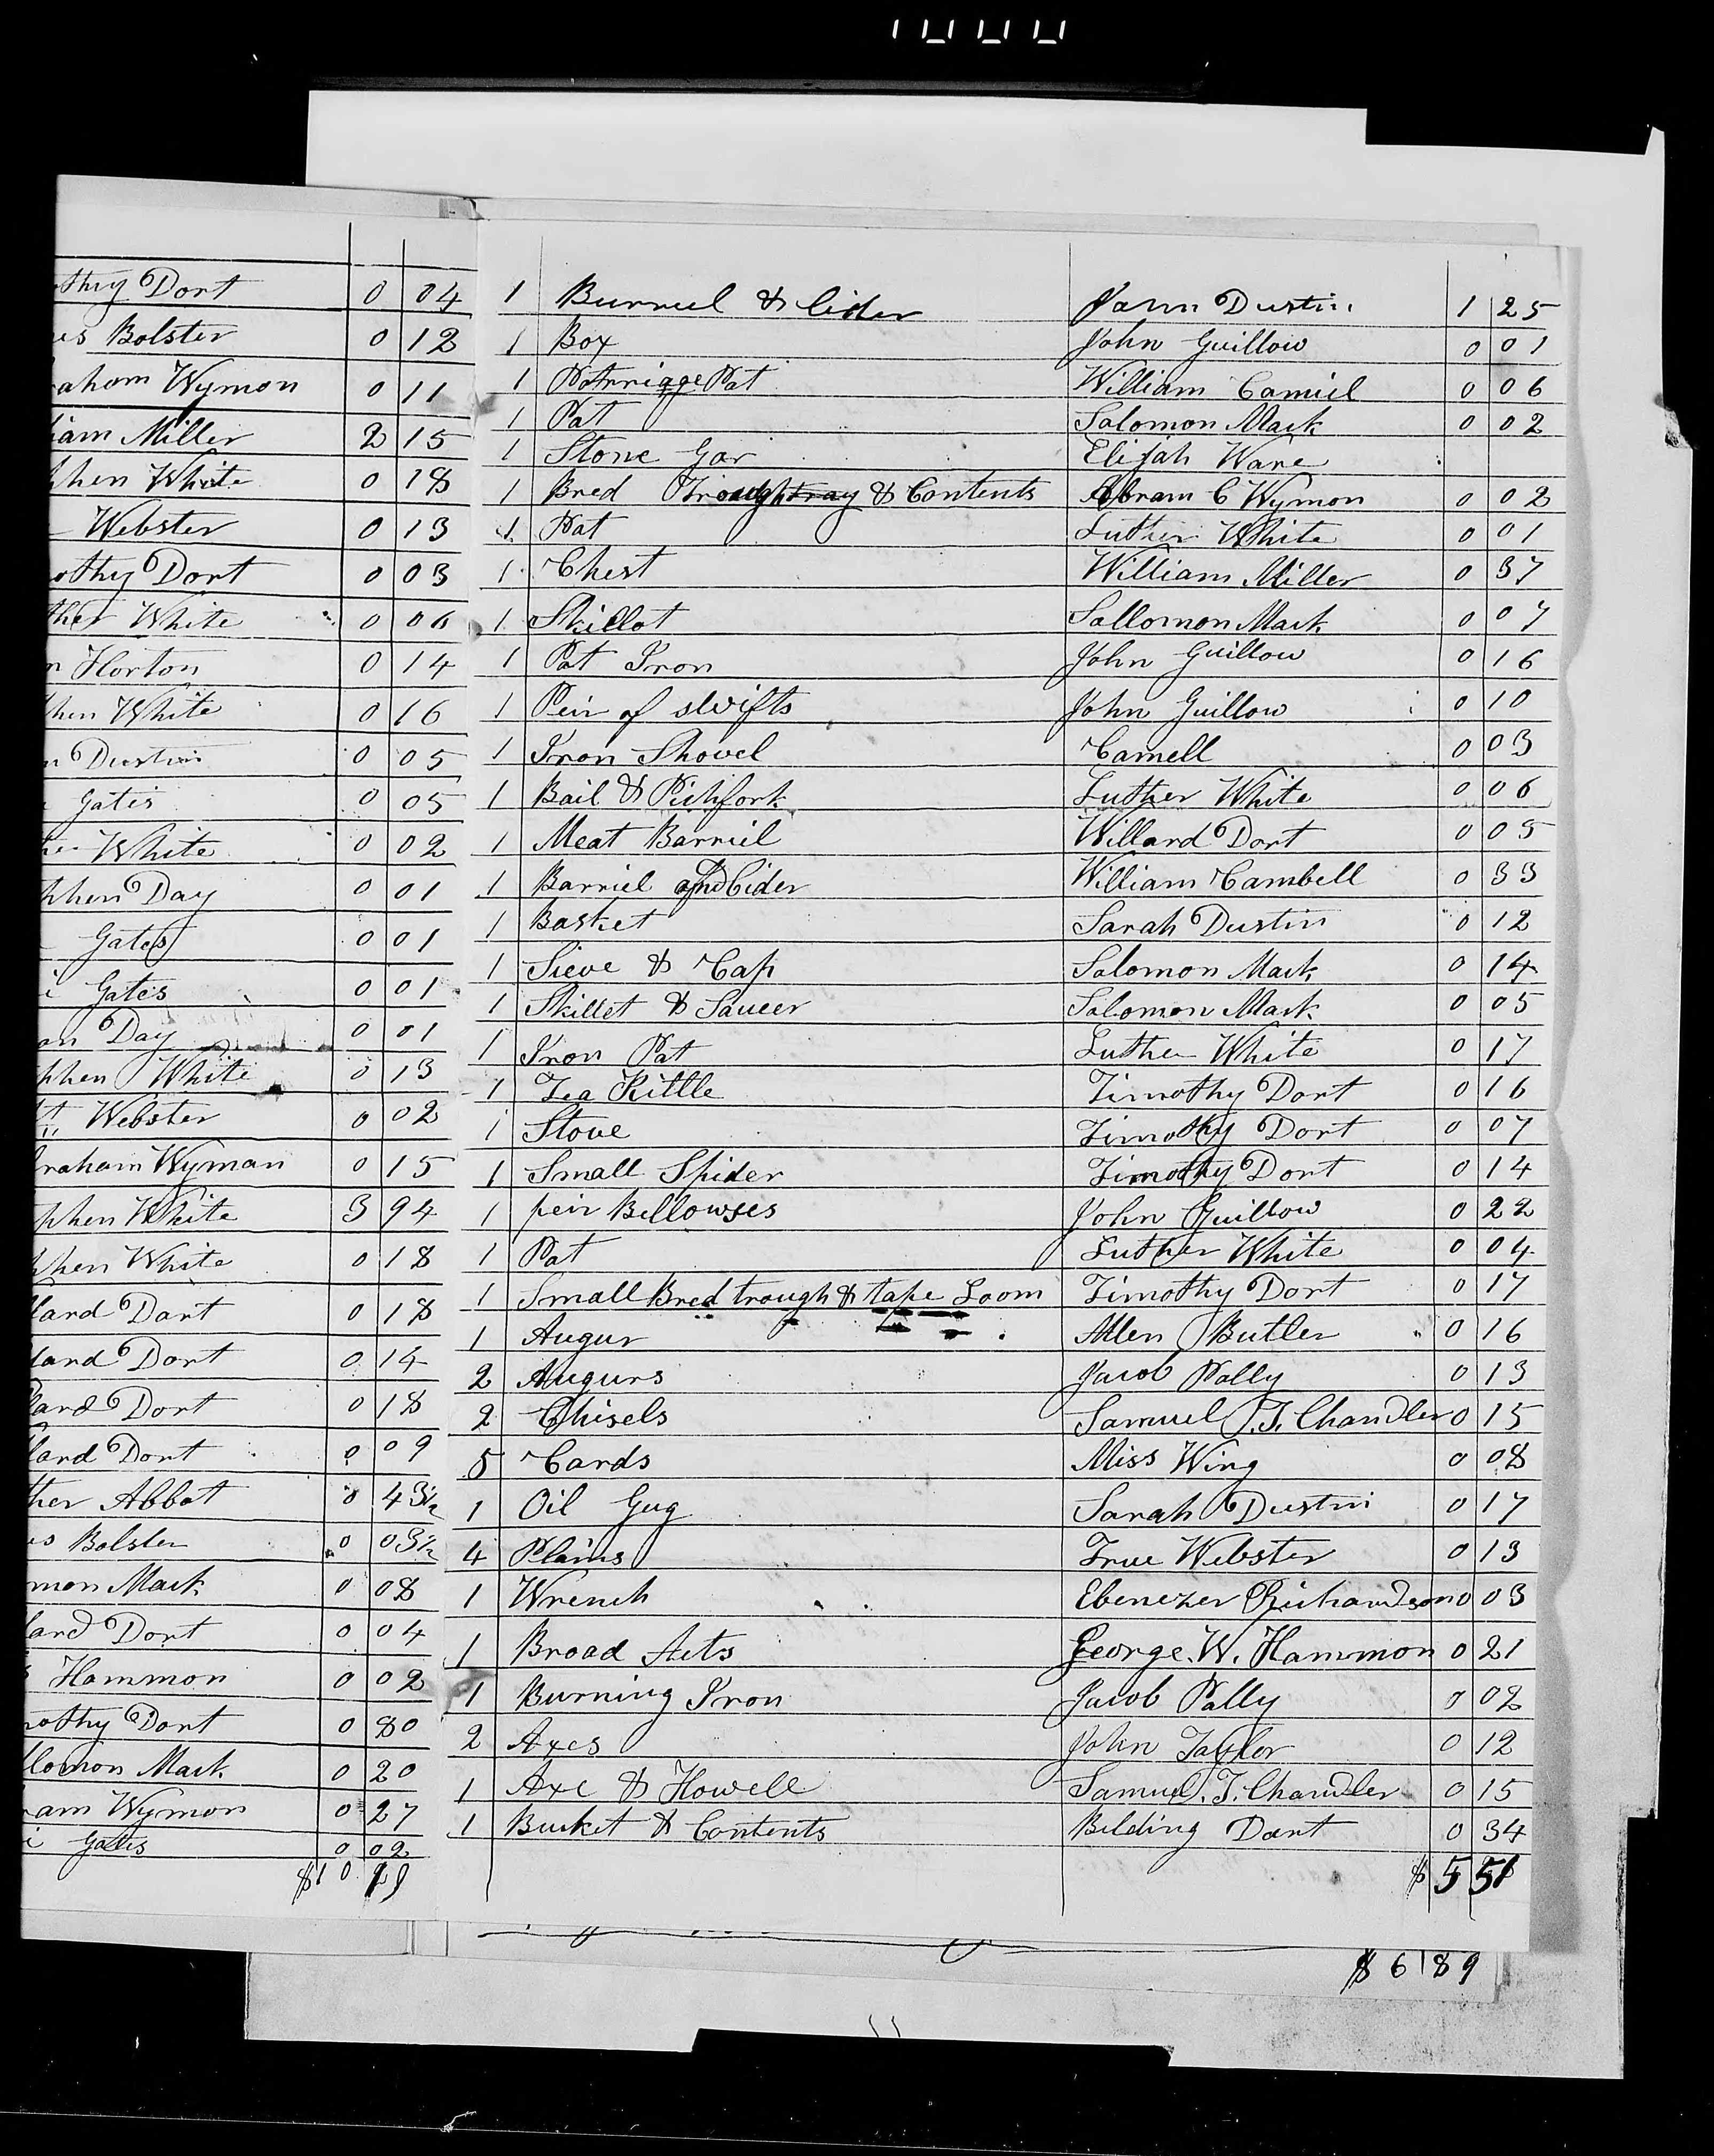 othy Dort 0 04
es Bolster 0 12
raham Wymon 0 11
liam Miller 2 15
phen White 0 18
Webster 0 13
othy Dort 0 03
ther White 0 06
n Horton 0 14
hen White 0 16
n Dustin 0 05
Gates 0 05
White 0 02
phen Day 0 01
Gates 0 01
i Gates 0 01
on Day 0 01
phen White 0 13
Webster 0 02
braham Wyman 0 15
phen White 3 94
phen White 0 18
lard Dart 0 18
lard Dort 0 14
lard Dort 0 18
lard Dort 0 09
ther Abbot 0 43½
es Bolster 0 03½
mon Mack 0 08
lard Dort 0 04
Hammon 0 02
mothy Dort 0 80
lomon Mack 0 20
ram Wymon 0 27
i Gates 0 02
$10 19
1 Burriel & Cider John Dustin 1 25
1 Box John Guillow 0 01
1 Patrriage Pat William Camiel 0 06
1 Pat Salomon Mack 0 02
1 Stone Gar Elijah Ware
1 Bred Trough tray & Contents Abram C Wymon 0 02
1 Pat Luther White 0 01
1 Chest William Miller 0 37
1 Skillot Sallomon Mack 0 07
1 Pat Iron John Guillow 0 16
1 Peir of swifts John Guillow 0 10
1 Iron Shovel Camell 0 03
1 Bail & Pichfork Luther White 0 06
1 Meat Barriel Willard Dort 0 05
1 Barriel and Cider William Cambell 0 33
1 Basket Sarah Dustin 0 12
1 Sieve & Cap Salomon Mack 0 14
1 Skillet & Saucer Salomon Mack 0 05
1 Iron Pat Luther White 0 17
1 Tea Kittle Timothy Dort 0 16
1 Stove Timothy Dort 0 07
1 Small Spider Timothy Dort 0 14
1 peir Bellowses John Guillow 0 22
1 Pat Luther White 0 04
1 Small Bred trough & tape Loom Timothy Dort 0 17
1 Augur Allen Butler 0 16
2 Augurs Jacob Pally 0 13
2 Chisels Samuel T. Chandler 0 15
5 Cards Miss Wing 0 08
1 Oil Gug Sarah Dustin 0 17
4 Plains True Webster 0 13
1 Wrench Ebenezer Richardson 0 03
1 Broad Acts George. W. Hammon 0 21
1 Burning Iron Jacob Pally 0 02
2 Axes John Taylor 0 12
1 Axe & Howell Samuel. T. Chandler 0 15
1 Bucket & Contents Belding Dart 0 34
$ 5 51
$ 6 89